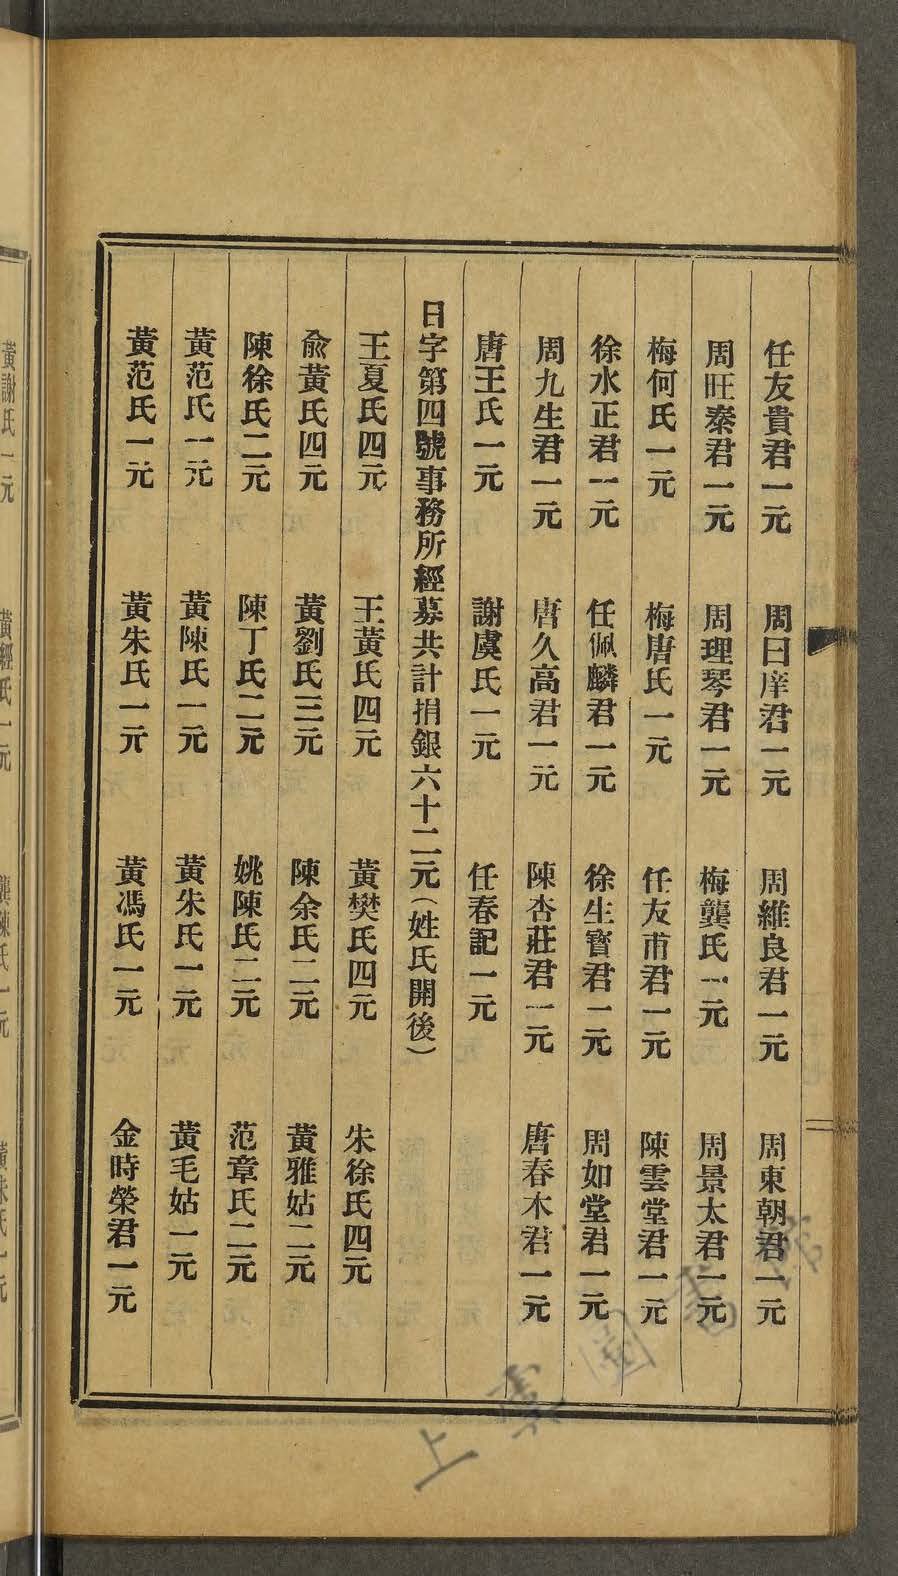 任友貴君一元　周曰庠君一元　周維良君一元　周東朝君一元
周旺泰君一元　周理琴君一元　梅龔氏一元　周景太君一元
梅何氏一元　梅唐氏一元　任友甫君一元　陳雲堂君一元
徐水正君一元　任佩麟君一元　徐生寳君一元　周如堂君一元
周九生君一元　唐久高君一元　陳杏莊君一元　唐春木君一元
唐王氏一元　謝虞氏一元　任春記一元
日字第四號事務所經募共計捐銀六十二元（姓氏開後）
王夏氏四元　王黃氏四元　黃樊氏四元　朱徐氏四元
俞黃氏四元　黃劉氏三元　陳余氏二元　黃雅姑二元
陳徐氏二元　陳丁氏二元　姚陳氏二元　范章氏二元
黃范氏一元　黃陳氏一元　黃朱氏一元　黃毛姑一元
黃范氏一元　黃朱氏一元　黃馮氏一元　金時榮君一元
黃謝氏一元　黃經氏一元　龔陳氏一元　黃朱氏一元
上虞圖書館